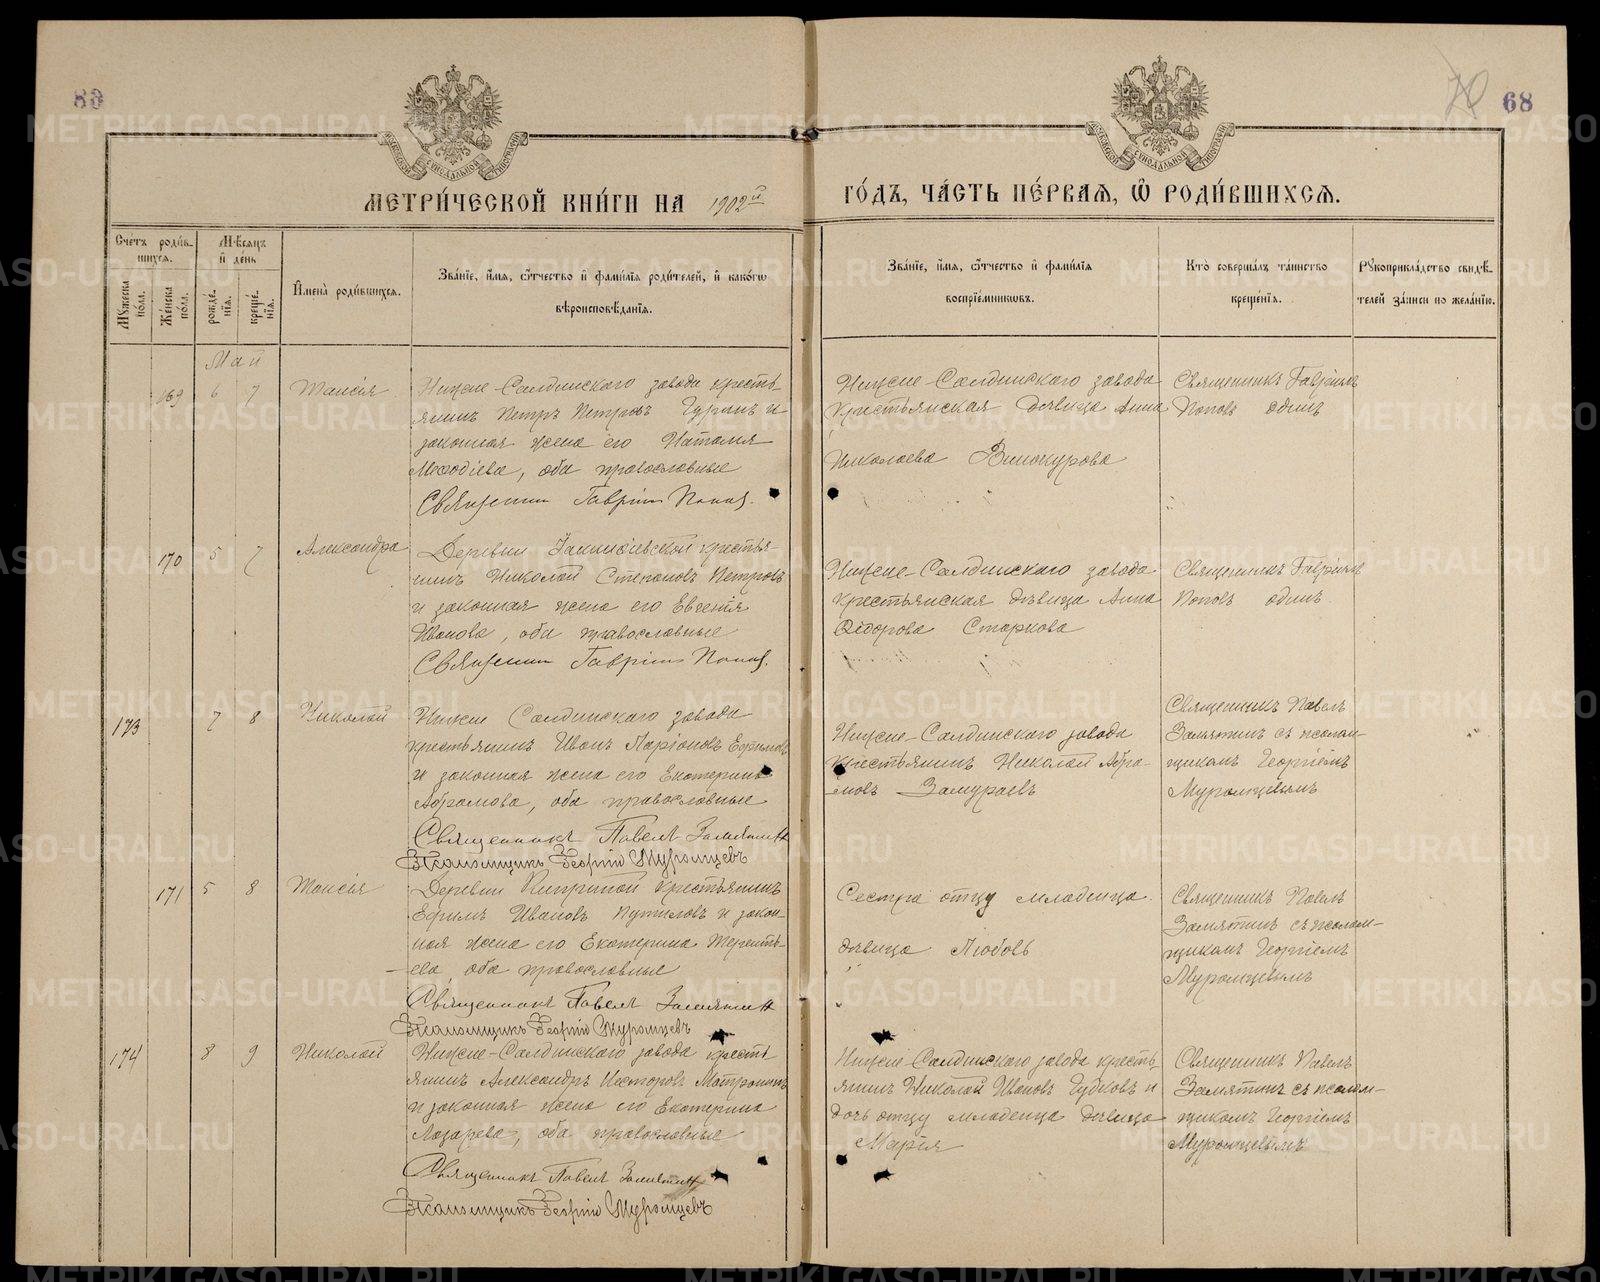 89
70 68
МЕТРИ́ЧЕСКОЙ КНИ́ГИ НА 1902й ГО́ДЪ, ЧА́СТЬ ПЕ́РВАЯ, Ѡ҆ РОДИ́ВШИХСЯ.
Сче́тъ роди́в-
шихся.
Му́жеска по́ла.
Же́нска по́ла.
Мѣ́сяцъ и де́нь
рожде́нія.
креще́нія.
И҆мена̀ роди́вшихся.
Зва́ніе, и҆́мя, ѻ҆́тчество и҆ фами́лія роди́телей, и҆ како́гѡ
вѣроисповѣ́данія.
Зва́ніе, и҆́мя, ѻ҆́тчество и҆ фами́лія
воспріе́мниковъ.
Кто̀ соверша́лъ та́инство
креще́нія.
Рукоприкла́дство свидѣ́-
телей за́писи по жела́нію.
Май
169 6 7 Таисія
Нижне-Салдинскаго завода кресть-
янинъ Петръ Петровъ Гуринъ и
законная жена его Наталія
Меѳодіева, оба православные
Священник Гавріил Попов.
Нижне-Салдинскаго завода
крестьянская дѣвица Анна
Николаева Винокурова
Священникъ Гавріилъ
Поповъ одинъ
170 5 7 Александра
Деревни крестья-
нинъ Николай Степановъ Петровъ
и законная жена его Евгенія
Иванова, оба православные
Священник Гавріил Попов.
Нижне-Салдинскаго завода
крестьянская дѣвица Анна
Ѳедорова Старкова
Священникъ Гавріилъ
Поповъ одинъ
173 7 8 Николай
Нижне Салдинскаго завода
крестьянинъ Иванъ Ларіоновъ Ефимовъ
и законная жена его Екатерина
Абрамова, оба православные
Священникъ Павелъ Замятин
Псаломщикъ Георгій Муромцевъ
Нижне-Салдинскаго завода
крестьянинъ Николай Абра-
мовъ Замураевъ
Священникъ Павелъ
Замятинъ съ псалом-
щикомъ Георгіемъ
Муромцевымъ
171 5 8 Таисія
Деревни крестьянинъ
Ефимъ Ивановъ Путиловъ и закон-
ная жена его Екатерина Теренть-
ева, оба православные
Священникъ Павелъ Замятин
Псаломщикъ Георгій Муромцевъ
Сестра отцу младенца
дѣвица Любовь
Священникъ Павелъ
Замятинъ съ псалом-
щикомъ Георгіемъ
Муромцевымъ
174 8 9 Николай
Нижне-Салдинскаго завода кресть-
янинъ Александръ Несторовъ Матронинъ
и законная жена его Екатерина
Лазарева, оба православные
Священникъ Павелъ Замятин
Псаломщикъ Георгій Муромцевъ
Нижне-Салдинскаго завода кресть-
янинъ Николай Ивановъ Губковъ и
дочь отцу младенца дѣвица
Марія
Священникъ Павелъ
Замятинъ съ псалом-
щикомъ Георгіемъ
Муромцевымъ
METRIKI.GASO-URAL.RU